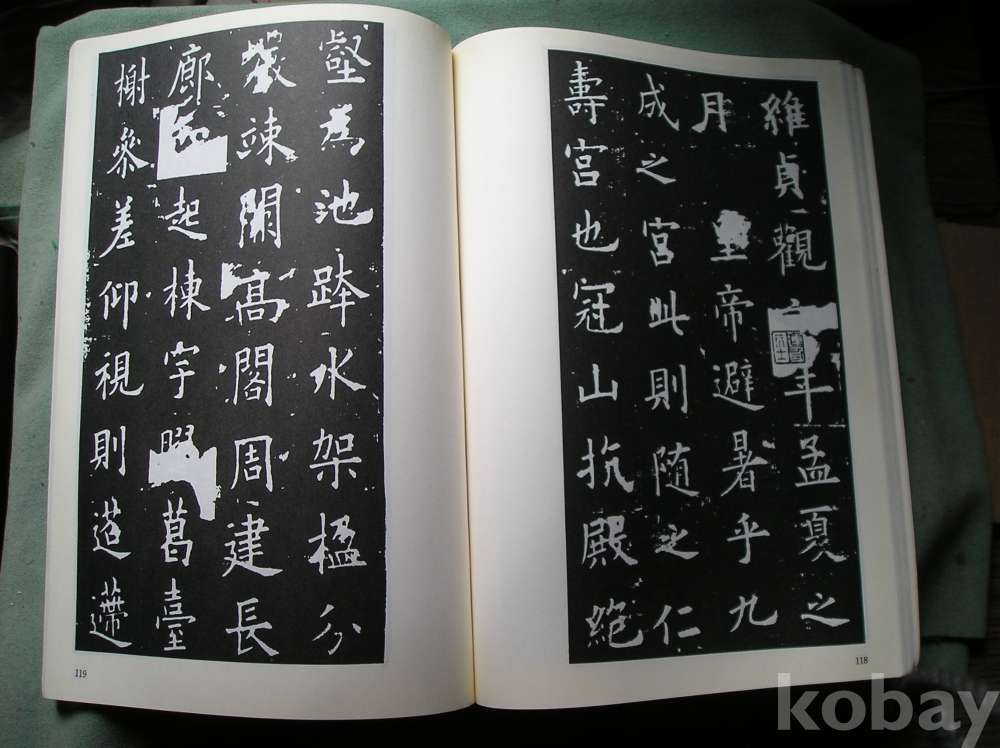 維貞觀六年孟夏之
月皇帝避暑乎九
成之宮此則随之仁
壽宮也冠山抗殿絕
118
壑為池跨水架楹分
巖竦闕高閣周建長
廊四起棟宇膠葛臺
榭參差仰視則迢遰
119
kobay